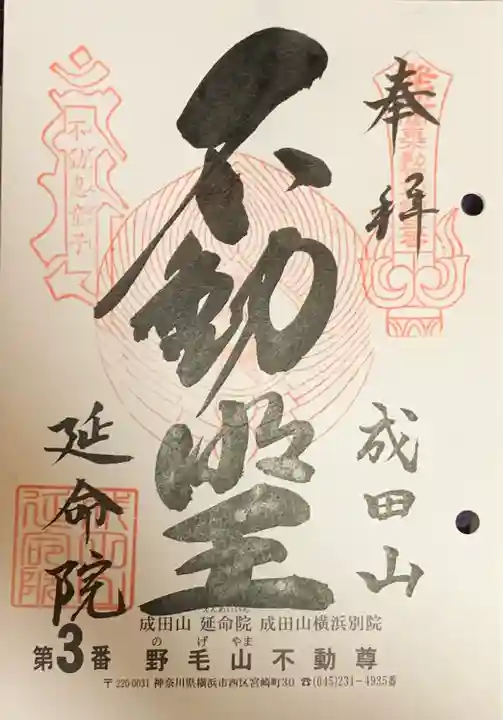 奉拝
成田山
不動明王
延命院
えんめいいん
成田山 延命院 成田山横浜別院
第3番
の げ やま
野毛山不動尊
〒220-0031 神奈川県横浜市西区宮崎町30 ☎(045)231-4935番